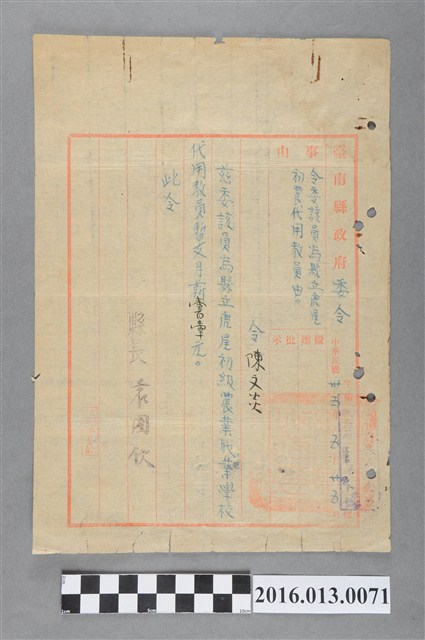 臺南縣政府委令
事由
令委該員為縣立虎尾
初農代用教員由。
擬辦
批示
中華民國
令陳文炎
茲委該員為縣立虎尾初級農業職業學校
代用教員暫支月薪壹
元。
此令
縣長袁國欽
1cm
5cm
10cm
2016.013.0071